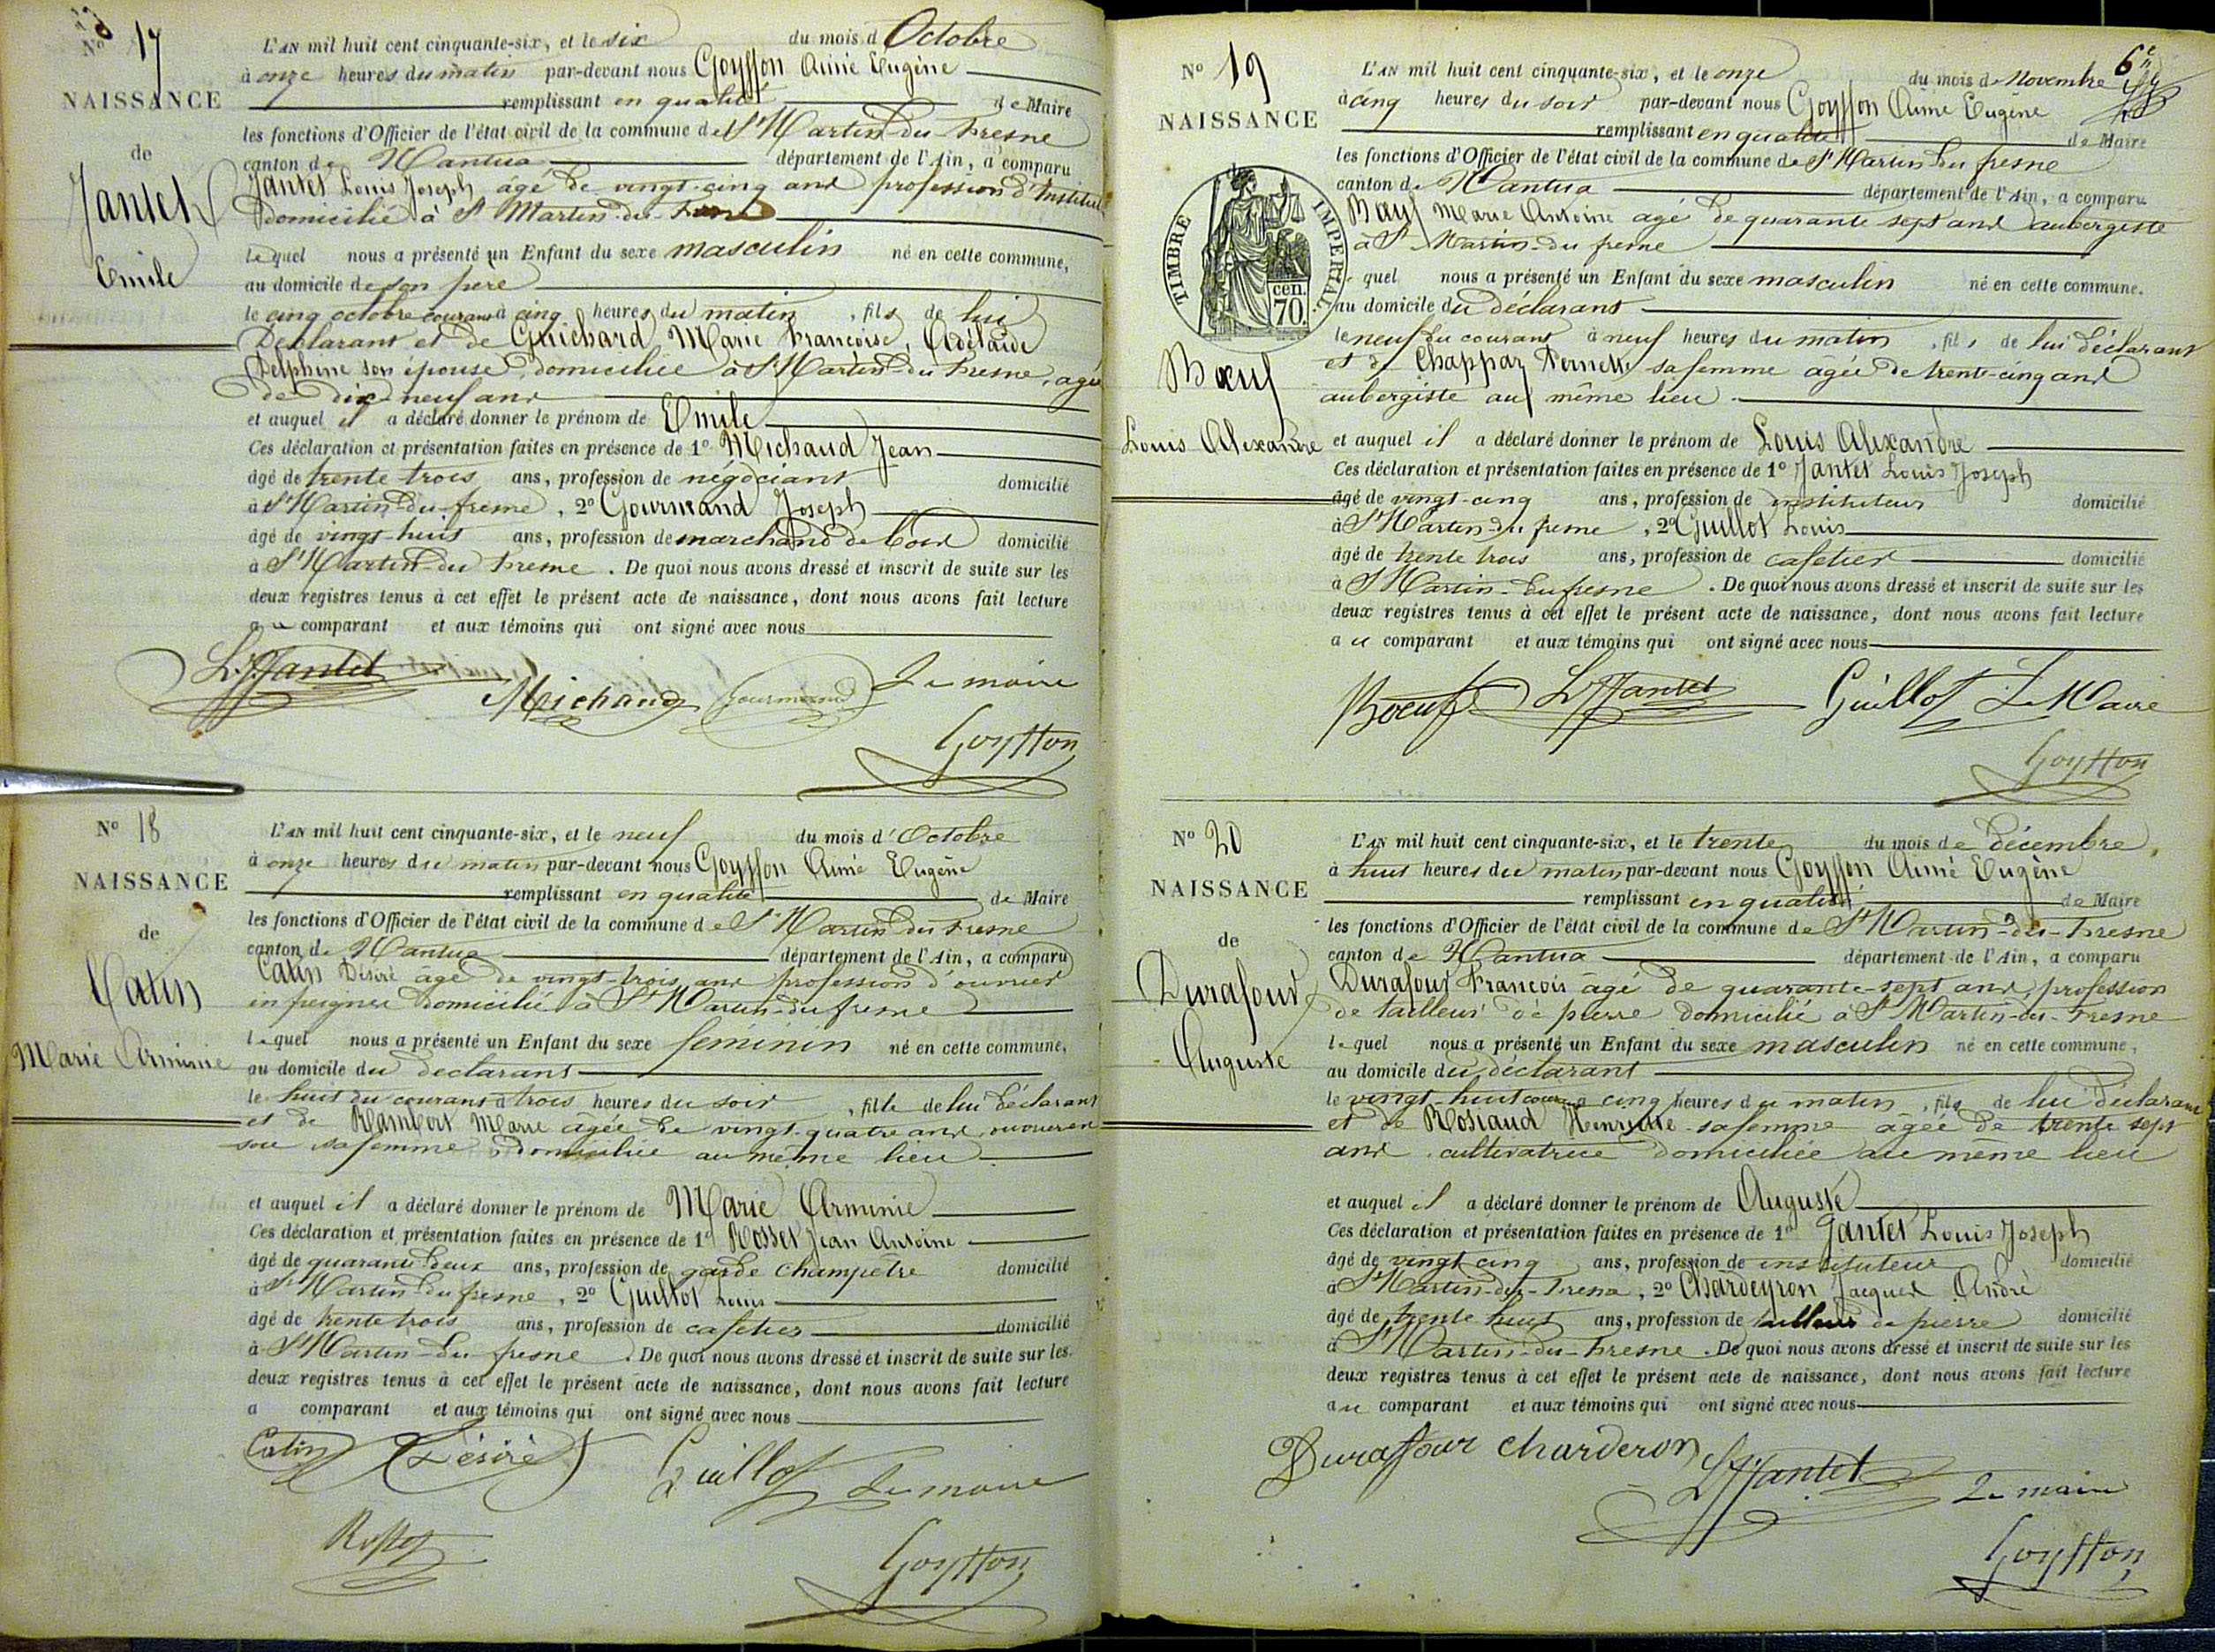 Nº 17
NAISSANCE
de
Jantet
Emile
L'AN mil huit cent cinquante-six, et le six du mois d'Octobre
à onze heures du matin par-devant nous Goyffon Aimé Eugène
remplissant en qualité de Maire
les fonctions d'Officier de l'état civil de la commune de St Martin-du-Fresne
canton de Nantua département de l'Ain, a comparu
Jantet Louis Joseph âgé de vingt-cinq ans profession d'Institut
domicilié à St Martin-du-Fresne
lequel nous a présenté un Enfant du sexe masculin né en cette commune,
au domicile de son père
le cinq octobre courant à cinq heures du matin, fils de lui
Déclarant et de Guichard Marie Françoise, Adélaïde
Delphine son épouse, domiciliée à St Martin-du-Fresne, agée
de dix-neuf ans
et auquel il a déclaré donner le prénom de Emile
Ces déclaration et présentation faites en présence de 1º Michaud Jean
âgé de trente trois ans, profession de négociant domicilié
à St Martin-du-fresne, 2º Gourmand Joseph
âgé de vingt-huit ans, profession de marchand de bois domicilié
à St Martin-du-Fresne. De quoi nous avons dressé et inscrit de suite sur les
deux registres tenus à cet effet le présent acte de naissance, dont nous avons fait lecture
au comparant et aux témoins qui ont signé avec nous
L. J. Jantet Michaud Gourmand Le maire
Goyffon
Nº 18
NAISSANCE
de
Catin
Marie Arminie
L'AN mil huit cent cinquante-six, et le neuf du mois d'Octobre
à onze heures du matin par-devant nous Goyffon Aimé Eugène
remplissant en qualité de Maire
les fonctions d'Officier de l'état civil de la commune de St Martin-du-Fresne
canton de Nantua département de l'Ain, a comparu
Catin Désiré âgé de vingt-trois ans profession d'ouvrier
en peignes domicilié à St Martin-du-fresne
lequel nous a présenté un Enfant du sexe féminin né en cette commune,
au domicile du déclarant
le huit du courant à trois heures du soir, fille de lui déclarant
et de Rambert Marie âgée de vingt-quatre ans, ouvrière en
soie sa femme, domiciliée au même lieu
et auquel il a déclaré donner le prénom de Marie Arminie
Ces déclaration et présentation faites en présence de 1º Rosset Jean Antoine
âgé de quarante-deux ans, profession de garde champêtre domicilié
à St Martin du fresne, 2º Guillot Louis
âgé de trente trois ans, profession de cafetier domicilié
à St Martin-du-fresne. De quoi nous avons dressé et inscrit de suite sur les
deux registres tenus à cet effet le présent acte de naissance, dont nous avons fait lecture
a comparant et aux témoins qui ont signé avec nous
Catin Désiré Guillot Le maire
Rosset
Goyffon
6e
Nº 19
NAISSANCE
de
TIMBRE IMPERIAL
cen.
70.
Bœuf
Louis Alexandre
L'AN mil huit cent cinquante-six, et le onze du mois de Novembre
à cinq heures du soir par-devant nous Goyffon Aimé Eugène
remplissant en qualité de Maire
les fonctions d'Officier de l'état civil de la commune de St Martin du fresne
canton de Nantua département de l'Ain, a comparu
Bœuf Marie Antoine agé de quarante sept ans aubergiste
à St Martin-du fresne
quel nous a présenté un Enfant du sexe masculin né en cette commune.
au domicile du déclarant
le neuf du courant à neuf heures du matin, fils de lui déclarant
et de Chappaz Pernette sa femme âgée de trente-cinq ans
aubergiste au même lieu.
et auquel il a déclaré donner le prénom de Louis Alexandre
Ces déclaration et présentation faites en présence de 1º Jantet Louis Joseph
âgé de vingt-cinq ans, profession de instituteur domicilié
à St Martin-du fresne, 2º Guillot Louis
âgé de trente trois ans, profession de cafetier domicilié
à St Martin-du fresne. De quoi nous avons dressé et inscrit de suite sur les
deux registres tenus à cet effet le présent acte de naissance, dont nous avons fait lecture
au comparant et aux témoins qui ont signé avec nous
Boeuf L J Jantet Guillot Le Maire
Goyffon
Nº 20
NAISSANCE
de
Durafour
Auguste
L'AN mil huit cent cinquante-six, et le trente du mois de décembre,
à huit heures du matin par-devant nous Goyffon Aimé Eugène
remplissant en qualité de Maire
les fonctions d'Officier de l'état civil de la commune de St Martin-du-Fresne
canton de Nantua département de l'Ain, a comparu
Durafour François âgé de quarante-sept ans, profession
de tailleur de pierre domicilié à St Martin-du-Fresne
lequel nous a présenté un Enfant du sexe masculin né en cette commune,
au domicile du déclarant
le vingt-huit courant à cinq heures du matin, fils de lui déclarant
et de Rosiaud Henriette sa femme âgée de trente sept
ans, cultivatrice domiciliée au même lieu
et auquel il a déclaré donner le prénom de Auguste
Ces déclaration et présentation faites en présence de 1º Jantet Louis Joseph
âgé de vingt cinq ans, profession de instituteur domicilié
à St Martin-du-Fresne, 2º Chardeyron Jacques André
âgé de trente huit ans, profession de tailleur de pierre domicilié
à St Martin-du-Fresne. De quoi nous avons dressé et inscrit de suite sur les
deux registres tenus à cet effet le présent acte de naissance, dont nous avons fait lecture
au comparant et aux témoins qui ont signé avec nous
Durafour Charderon L J Jantet Le maire
Goyffon